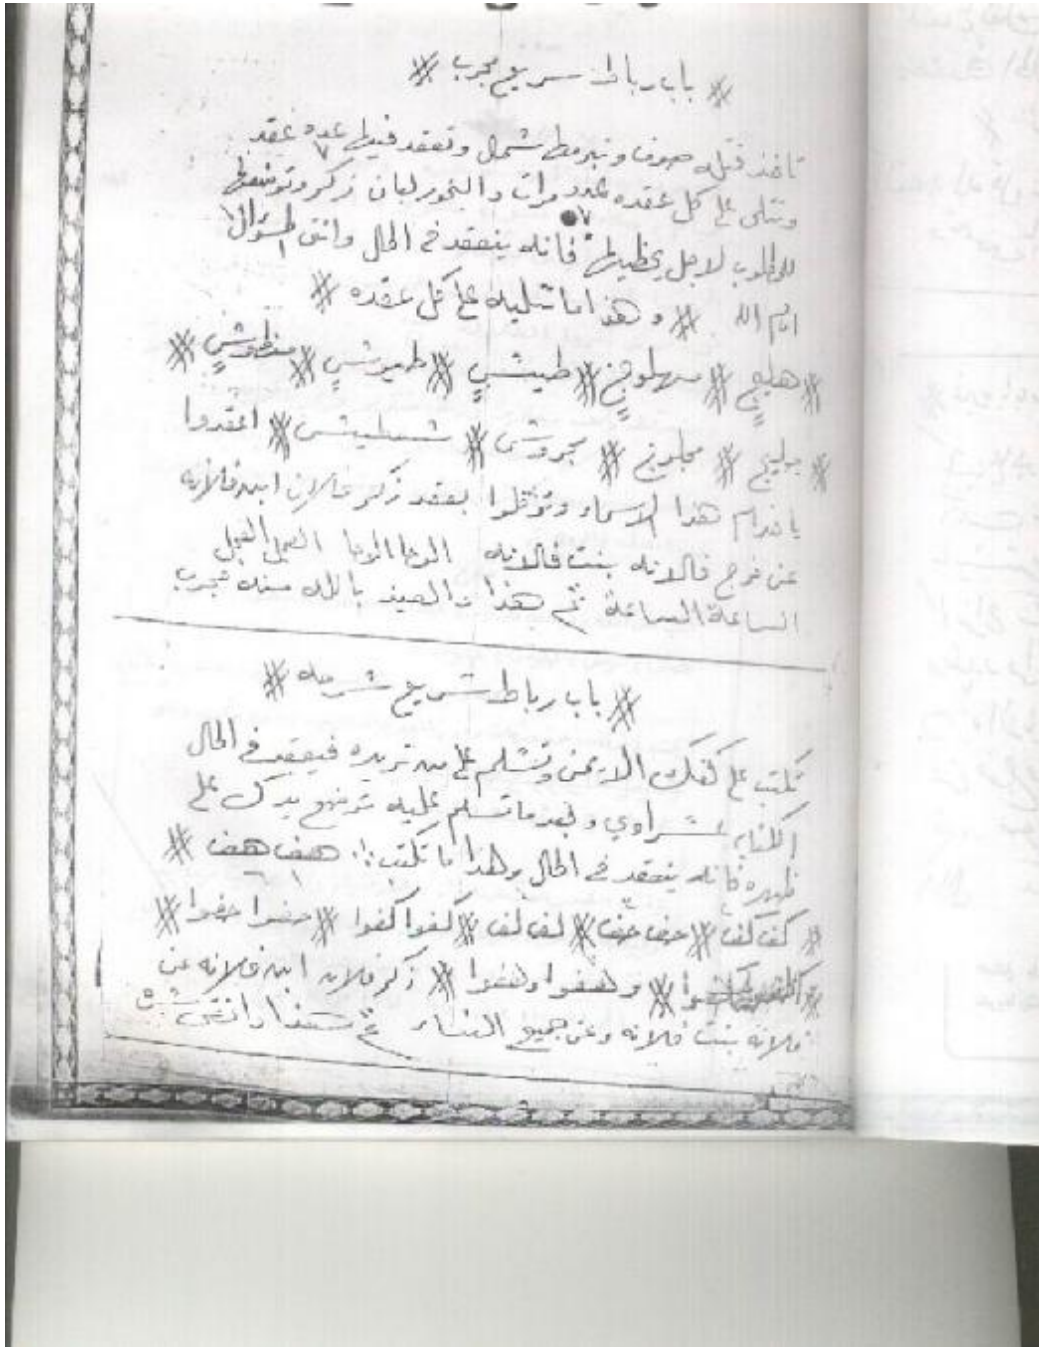 # باب رباط سريع مجرب #
تاخذ فتله صوف وتبرمها شمال وتعقد فيها عدد ٧ عقد
وتتلى على كل عقده عدد ٧ مرات والبخور لبان ذكر وتوضعها
للمطلوب لاجل يخطيها فانه ينعقد في الحال واتق السؤال
امام الله # وهذا ما تتليه على كل عقده #
# هليج # # طيشي # طيرشي #
# # # # اعقدوا
يا خدام هذا الاسماء وتوكلوا بعقد ذكر فلان ابن فلانه
عن فرج فلانه بنت فلانه الوحا الوحا العجل العجل
الساعة الساعة تم بهذا بالله منه مجرب
# باب رباط سريع #
تكتب على كفك الايمن وتسلم على من تريده فيعقد في الحال
وبعد ما تسلم عليه ترفع يدك على
ظهره فانه ينعقد في الحال وهذا ما تكتب :. هف هف #
# كف كف # حف حف # لف لف # كفوا كفوا # حفوا حفوا #
# وهفوا وهفوا # ذكر فلان ابن فلانه عن
فلانه بنت فلانه وعن جميع النساء تم